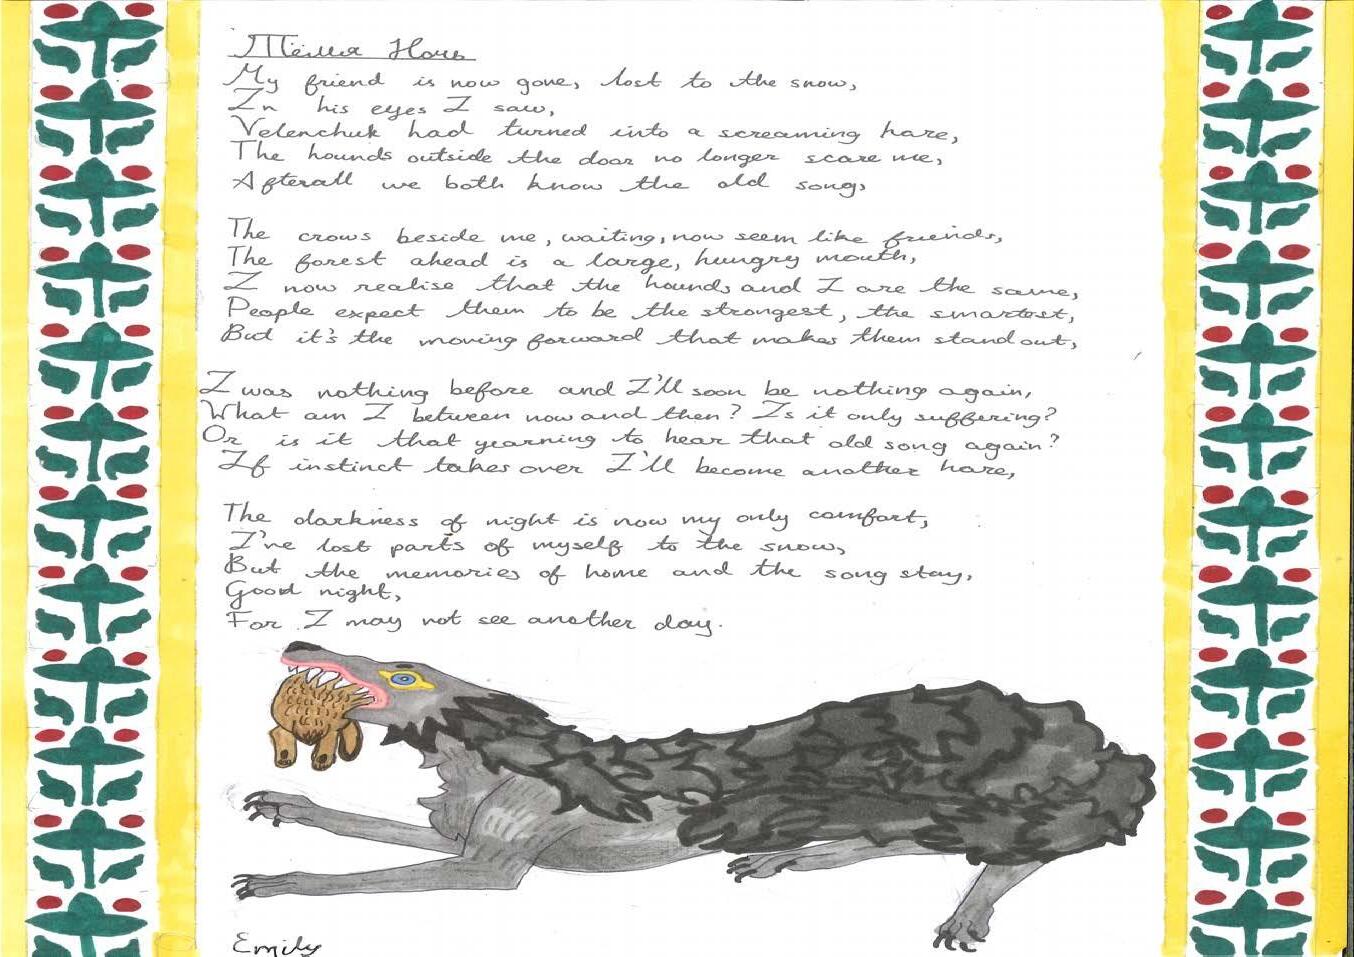 Ночь
My friend is now gone, lost to the snow,
In his eyes I saw,
Velenchuk had turned into a screaming hare,
The hounds outside the door no longer scare me,
Afterall we both know the old song,
The crows beside me, waiting, now seem like friends,
The forest ahead is a large, hungry mouth,
I now realise that the hounds and I are the same,
People expect them to be the strongest, the smartest,
But it's the moving forward that makes them stand out,
I was nothing before and I'll soon be nothing again,
What am I between now and then? Is it only suffering?
Or is it that yearning to hear that old song again?
If instinct takes over I'll become another hare,
The darkness of night is now my only comfort,
I've lost parts of myself to the snow,
But the memories of home and the song stay,
Good night,
For I may not see another day.
Emily